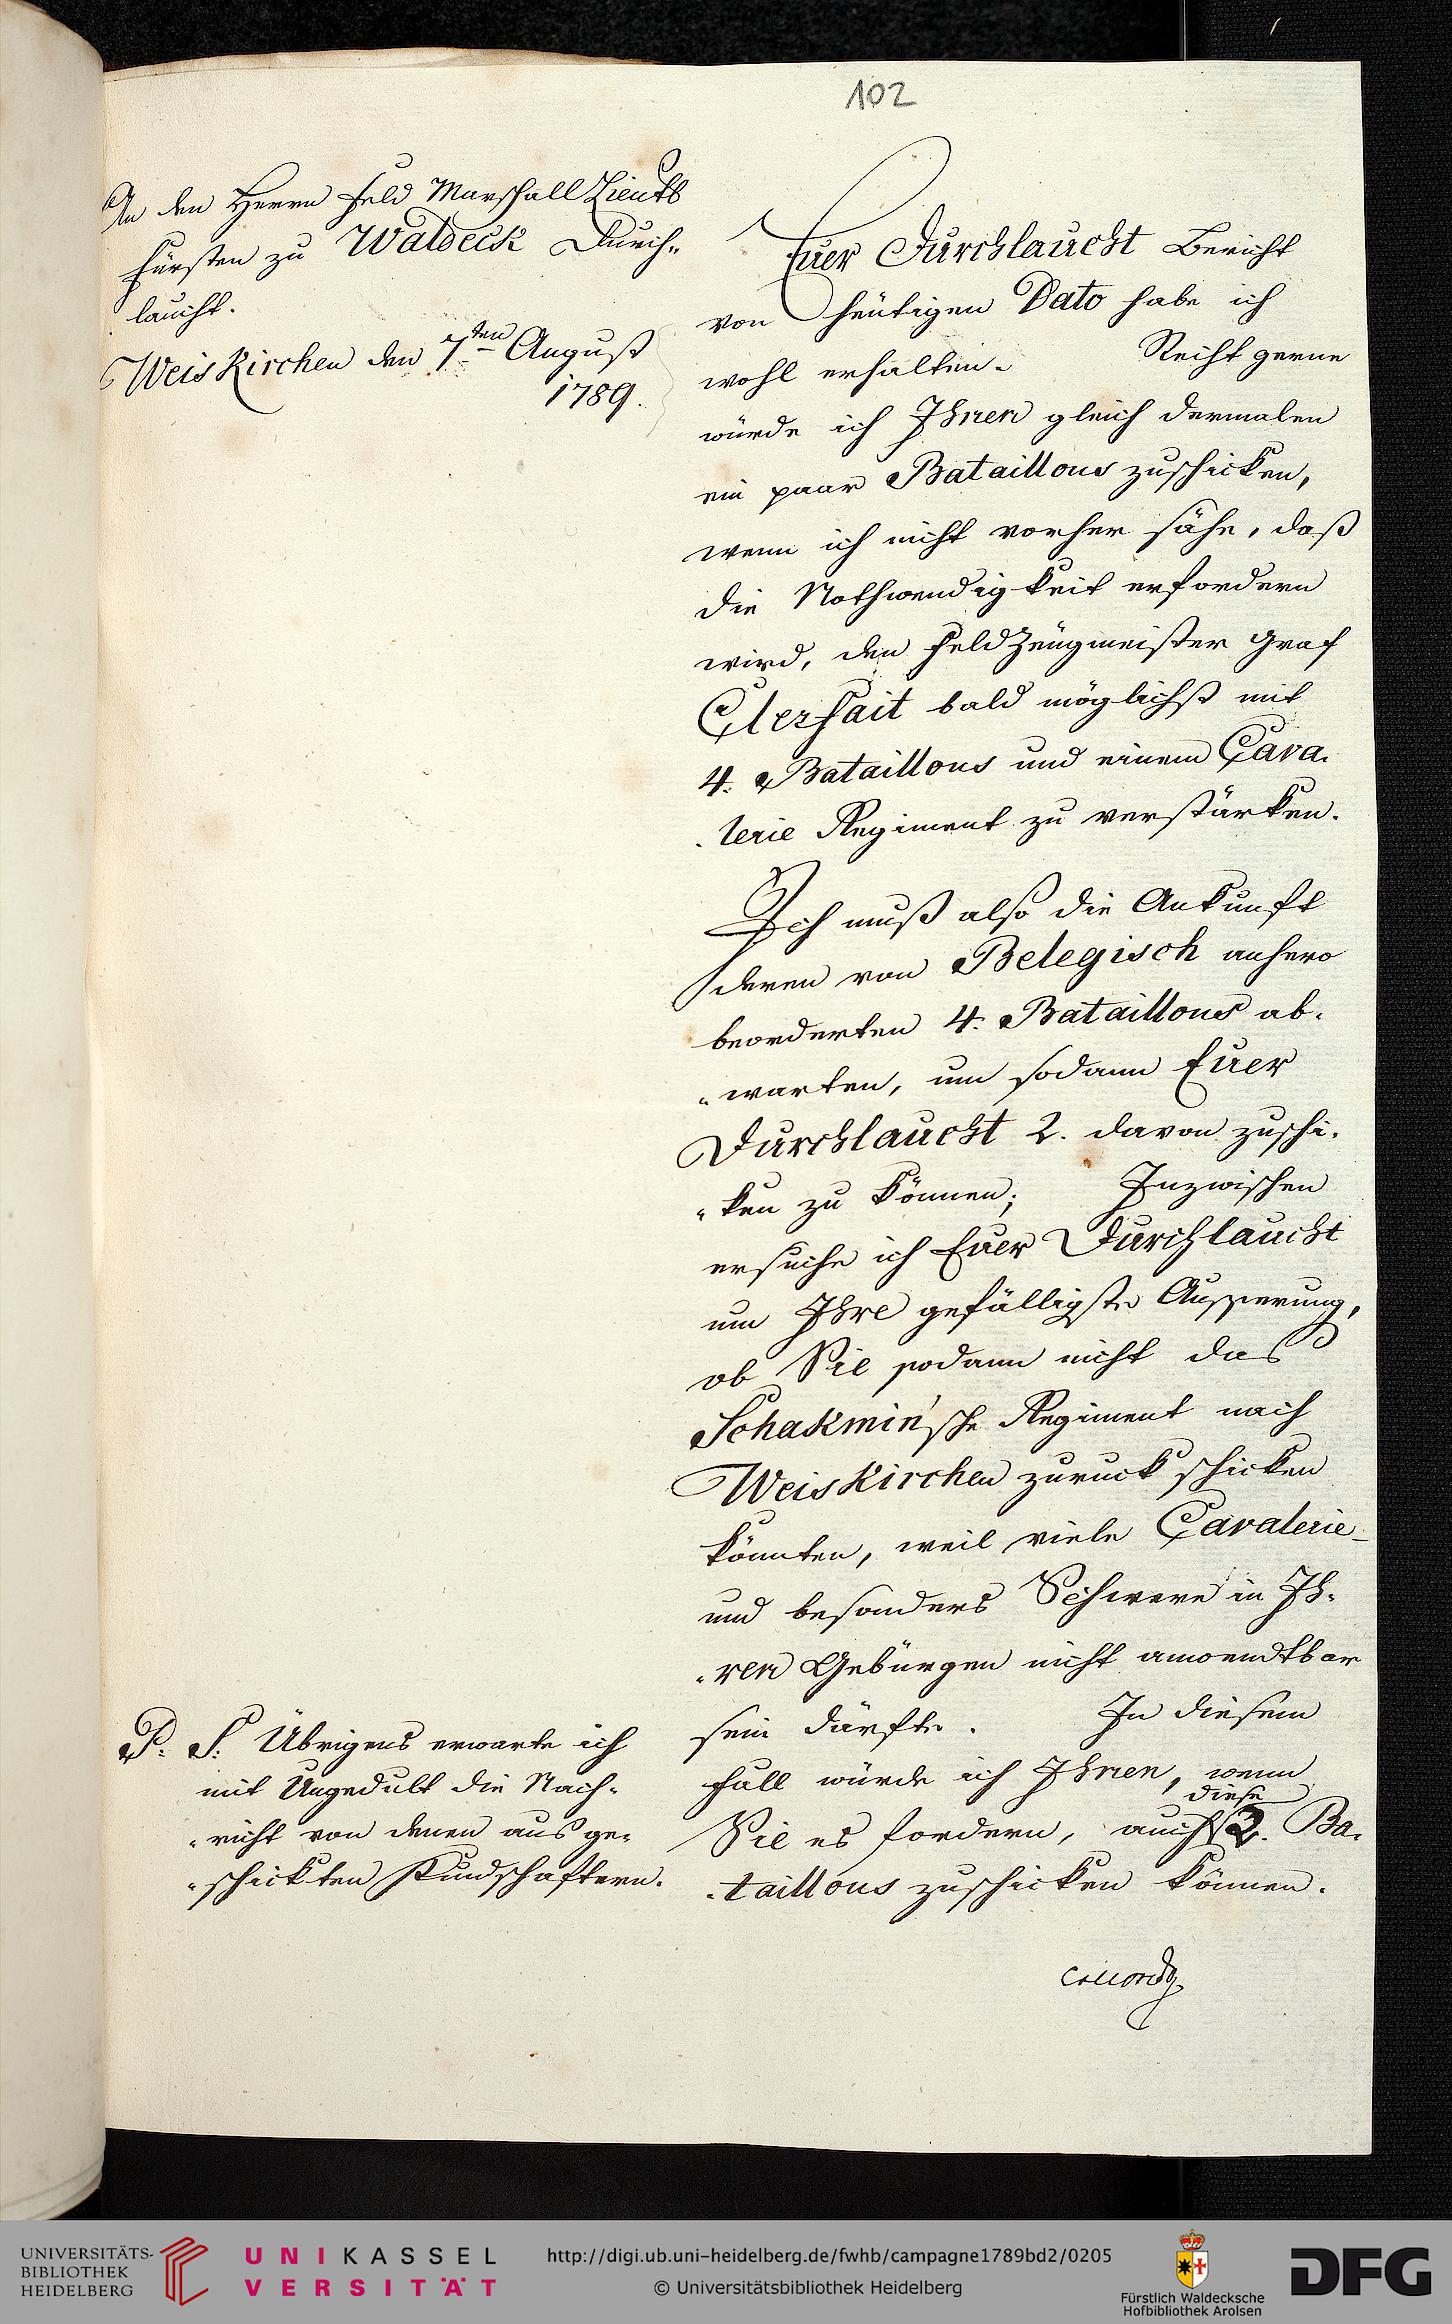 102
An den Herrn Feld Marschall Lieutt
Fürsten zu Waldeck Durch-
laucht.
Weiskirchen den 7ten August
1789.
Euer Durchlaucht Bericht
von heütigen Dato habe ich
wohl erhalten. Recht gerne
würde ich Ihnen gleich dermalen
ein paar Bataillons zuschicken,
wenn ich nicht vorher sähe, daß
die Nothwendigkeit erfordern
wird, den Feldzeügmeister Graf
Clerfait bald möglichst mit
4. Bataillons und einem Cava-
lerie Regiment zu verstärken.
Ich muß also die Ankunft
deren von Belegisch anhero
beorderten 4. Bataillons ab-
warten, um sodann Euer
Durchlaucht 2. davon zuschi-
ken zu können; Inzwischen
ersuche ich Euer Durchlaucht
um Ihre gefälligste Äusserung,
ob Sie sodann nicht das
Schakmin'sche Regiment nach
Weiskirchen zuruck schicken
könnten, weil viele Cavalerie
und besonders Schwere in Ih-
ren Gebürgen nicht anwendtbar
sein därfte. In diesem
Fall würde ich Ihnen, wenn
Sie es fordern, auch diese 2. Ba-
taillons zuschicken können.
P. S. Übrigens erwarte ich
mit Ungedult die Nach-
richt von denen ausge-
schickten Kundschaftern.
UNIVERSITÄTS-
BIBLIOTHEK
HEIDELBERG
UNIKASSEL
VERSITÄT
http://digi.ub.uni-heidelberg.de/fwhb/campagne1789bd2/0205
© Universitätsbibliothek Heidelberg
Fürstlich Waldecksche
Hofbibliothek Arolsen
DFG